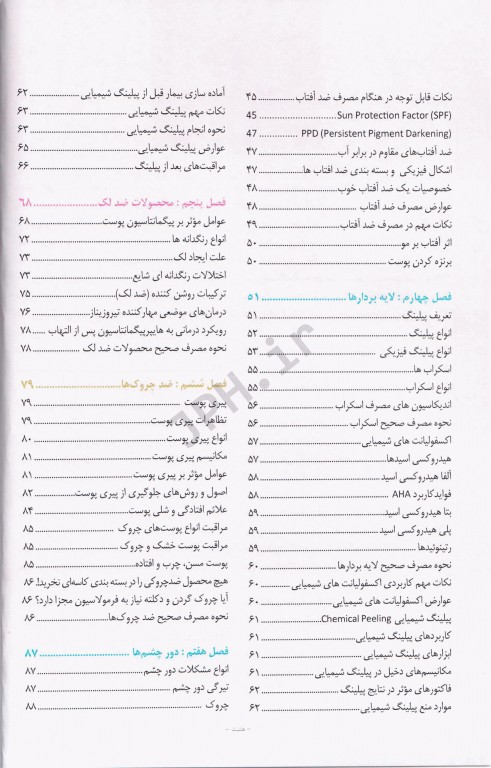 نکات قابل توجه در هنگام مصرف ضد آفتاب ۴۵
Sun Protection Factor (SPF) 45
PPD (Persistent Pigment Darkening) 47
ضد آفتاب‌های مقاوم در برابر آب ۴۷
اشکال فیزیکی و بسته بندی ضد افتاب ها ۴۷
خصوصیات یک ضد آفتاب خوب ۴۸
عوارض مصرف ضد آفتاب ۴۸
نکات مهم در مصرف ضد آفتاب ۴۹
اثر آفتاب بر مو ۵۰
برنزه کردن پوست ۵۰
فصل چهارم : لایه بردارها ۵۱
تعریف پیلینگ ۵۱
انواع پیلینگ ۵۲
انواع پیلینگ فیزیکی ۵۳
اسکراب ها ۵۵
انواع اسکراب ۵۵
اندیکاسیون های مصرف اسکراب ۵۶
نحوه مصرف صحیح اسکراب ۵۶
اکسفولیانت های شیمیایی ۵۷
هیدروکسی اسیدها ۵۷
آلفا هیدروکسی اسید ۵۸
فوایدکاربرد AHA ۵۸
بتا هیدروکسی اسید ۵۹
پلی هیدروکسی اسید ۵۹
رتینوئیدها ۵۹
نحوه مصرف صحیح لایه بردارها ۶۰
نکات مهم کاربردی اکسفولیانت های شیمیایی ۶۰
عوارض اکسفولیانت های شیمیایی ۶۰
پیلینگ شیمیایی Chemical Peeling ۶۱
کاربردهای پیلینگ شیمیایی ۶۱
ابزارهای پیلینگ شیمیایی ۶۱
مکانیسم‌های دخیل در پیلینگ شیمیایی ۶۱
فاکتورهای مؤثر در نتایج پیلینگ ۶۲
موارد منع پیلینگ شیمیایی ۶۲
آماده سازی بیمار قبل از پیلینگ شیمیایی ۶۲
نکات مهم پیلینگ شیمیایی ۶۳
نحوه انجام پیلینگ شیمیایی ۶۳
عوارض پیلینگ شیمیایی ۶۵
مراقبت‌های بعد از پیلینگ ۶۶
فصل پنجم : محصولات ضد لک ۶۸
عوامل مؤثر بر پیگمانتاسیون پوست ۶۸
انواع رنگدانه ها ۷۲
علت ایجاد لک ۷۳
اختلالات رنگدانه ای شایع ۷۳
ترکیبات روشن کننده (ضد لک) ۷۵
درمان‌های موضعی مهارکننده تیروزیناز ۷۶
رویکرد درمانی به هایپرپیگمانتاسیون پس از التهاب ۷۸
نحوه مصرف صحیح محصولات ضد لک ۷۸
فصل ششم : ضد چروک‌ها ۷۹
پیری پوست ۷۹
تظاهرات پیری پوست ۷۹
انواع پیری پوست ۸۰
مکانیسم پیری پوست ۸۱
عوامل مؤثر بر پیری پوست ۸۱
اصول و روش‌های جلوگیری از پیری پوست ۸۲
علائم افتادگی و شلی پوست ۸۴
مراقبت انواع پوست‌های چروک ۸۵
مراقبت پوست خشک و چروک ۸۵
پوست مسن، چرب و افتاده ۸۵
هیچ محصول ضدچروکی را در بسته بندی کاسه‌ای نخرید! ۸۶
آیا چروک گردن و دکلته نیاز به فرمولاسیون مجزا دارد؟ ۸۶
نحوه مصرف صحیح ضد چروک‌ها ۸۶
فصل هفتم : دور چشم‌ها ۸۷
انواع مشکلات دور چشم ۸۷
تیرگی دور چشم ۸۷
چروک ۸۸
- هشت -
JPH.ir